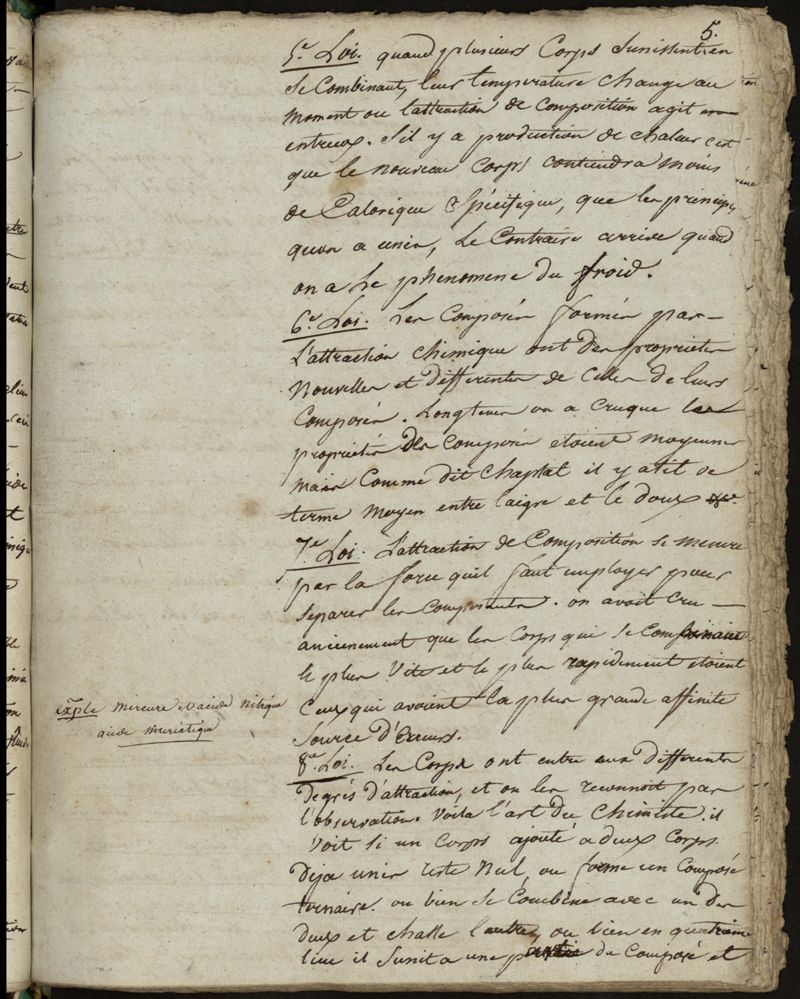 5.
5.e Loi. quand plusieurs Corps sunissent en
se Combinant, leur temperature change au
moment ou lattraction de composition agit
entreux. Sil y a production de chaleur cest
que le nouveau Corps contiendra moins
de Calorique Spécifique, que les principes
quon a unis, Le Contraire arrive quand
on a Le phenomene du froid.
6.e Loi. Les Composés formés par
L'attraction chimique ont des proprietes
Nouvelles et differentes de Celles de leurs
Composés. Longtems on a cruque les
proprietés des composés etoient moyennes
mais Comme dit Chaptal il y atil de
terme moyen entre laigre et le doux
7.e Loi. L'attraction de Composition se mesure
par la force quil faut employer pour
separer les Composants. on avait Cru
anciennement que les Corps qui se Combinaient
le plus Vite et le plus rapidement etoient
Ceux qui avoient la plus grande affinite
Source d'Erreurs.
exple mercure N acide Nitrique
acide muriatique
8.e Loi. Les Corps ont entre eux differents
degrés d'attraction, et on les reconnoit par
l'observation. Voila l'art du Chimiste. il
Voit si un Corps ajouté a deux Corps
Deja unis reste Nul, ou forme un Composé
ternaire. ou bien se Combine avec un des
deux et chasse l'autre, ou bien en quatrieme
lieu il sunit a une partie du Composé et